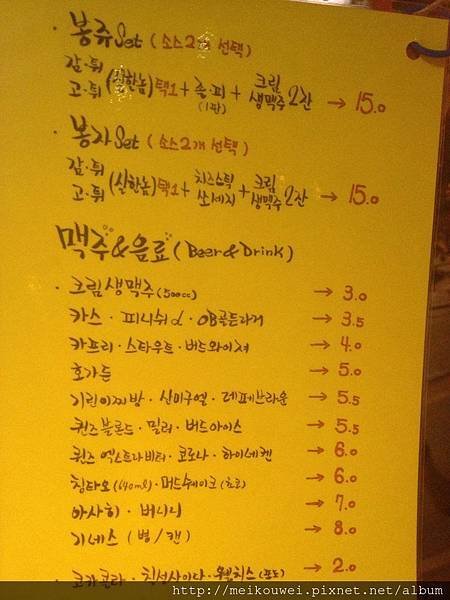 · 봉쥬 Set ( 소스 2개 선택 )
감·튀
고·튀 (실한놈) 택1 + 손·피 (1판) + 크림 생맥주 2잔 → 15.0
· 봉자 Set ( 소스 2개 선택 )
감·튀
고·튀 (실한놈) 택1 + 치즈스틱 쏘세지 + 크림 생맥주 2잔 → 15.0
맥주 & 음료 ( Beer & Drink )
· 크림 생맥주 (500cc) → 3.0
카스 · 피니쉬 d · OB골든라거 → 3.5
카프리 · 스타우트 · 버드와이져 → 4.0
호가든 → 5.0
기린이찌방 · 산미구엘 · 데페브라운 → 5.5
퀸즈블론드 · 밀러 · 버드아이스 → 5.5
퀸즈 엑스트라비터 · 코로나 · 하이네켄 → 6.0
칭타오 (640ml) · 머드쉐이크 (초코) → 6.0
아사히 · 버니니 → 7.0
기네스 ( 병 / 캔 ) → 8.0
· 코카콜라 · 칠성사이다 · 웰치스 (포도) → 2.0
http://meikouwei.pixnet.net/album